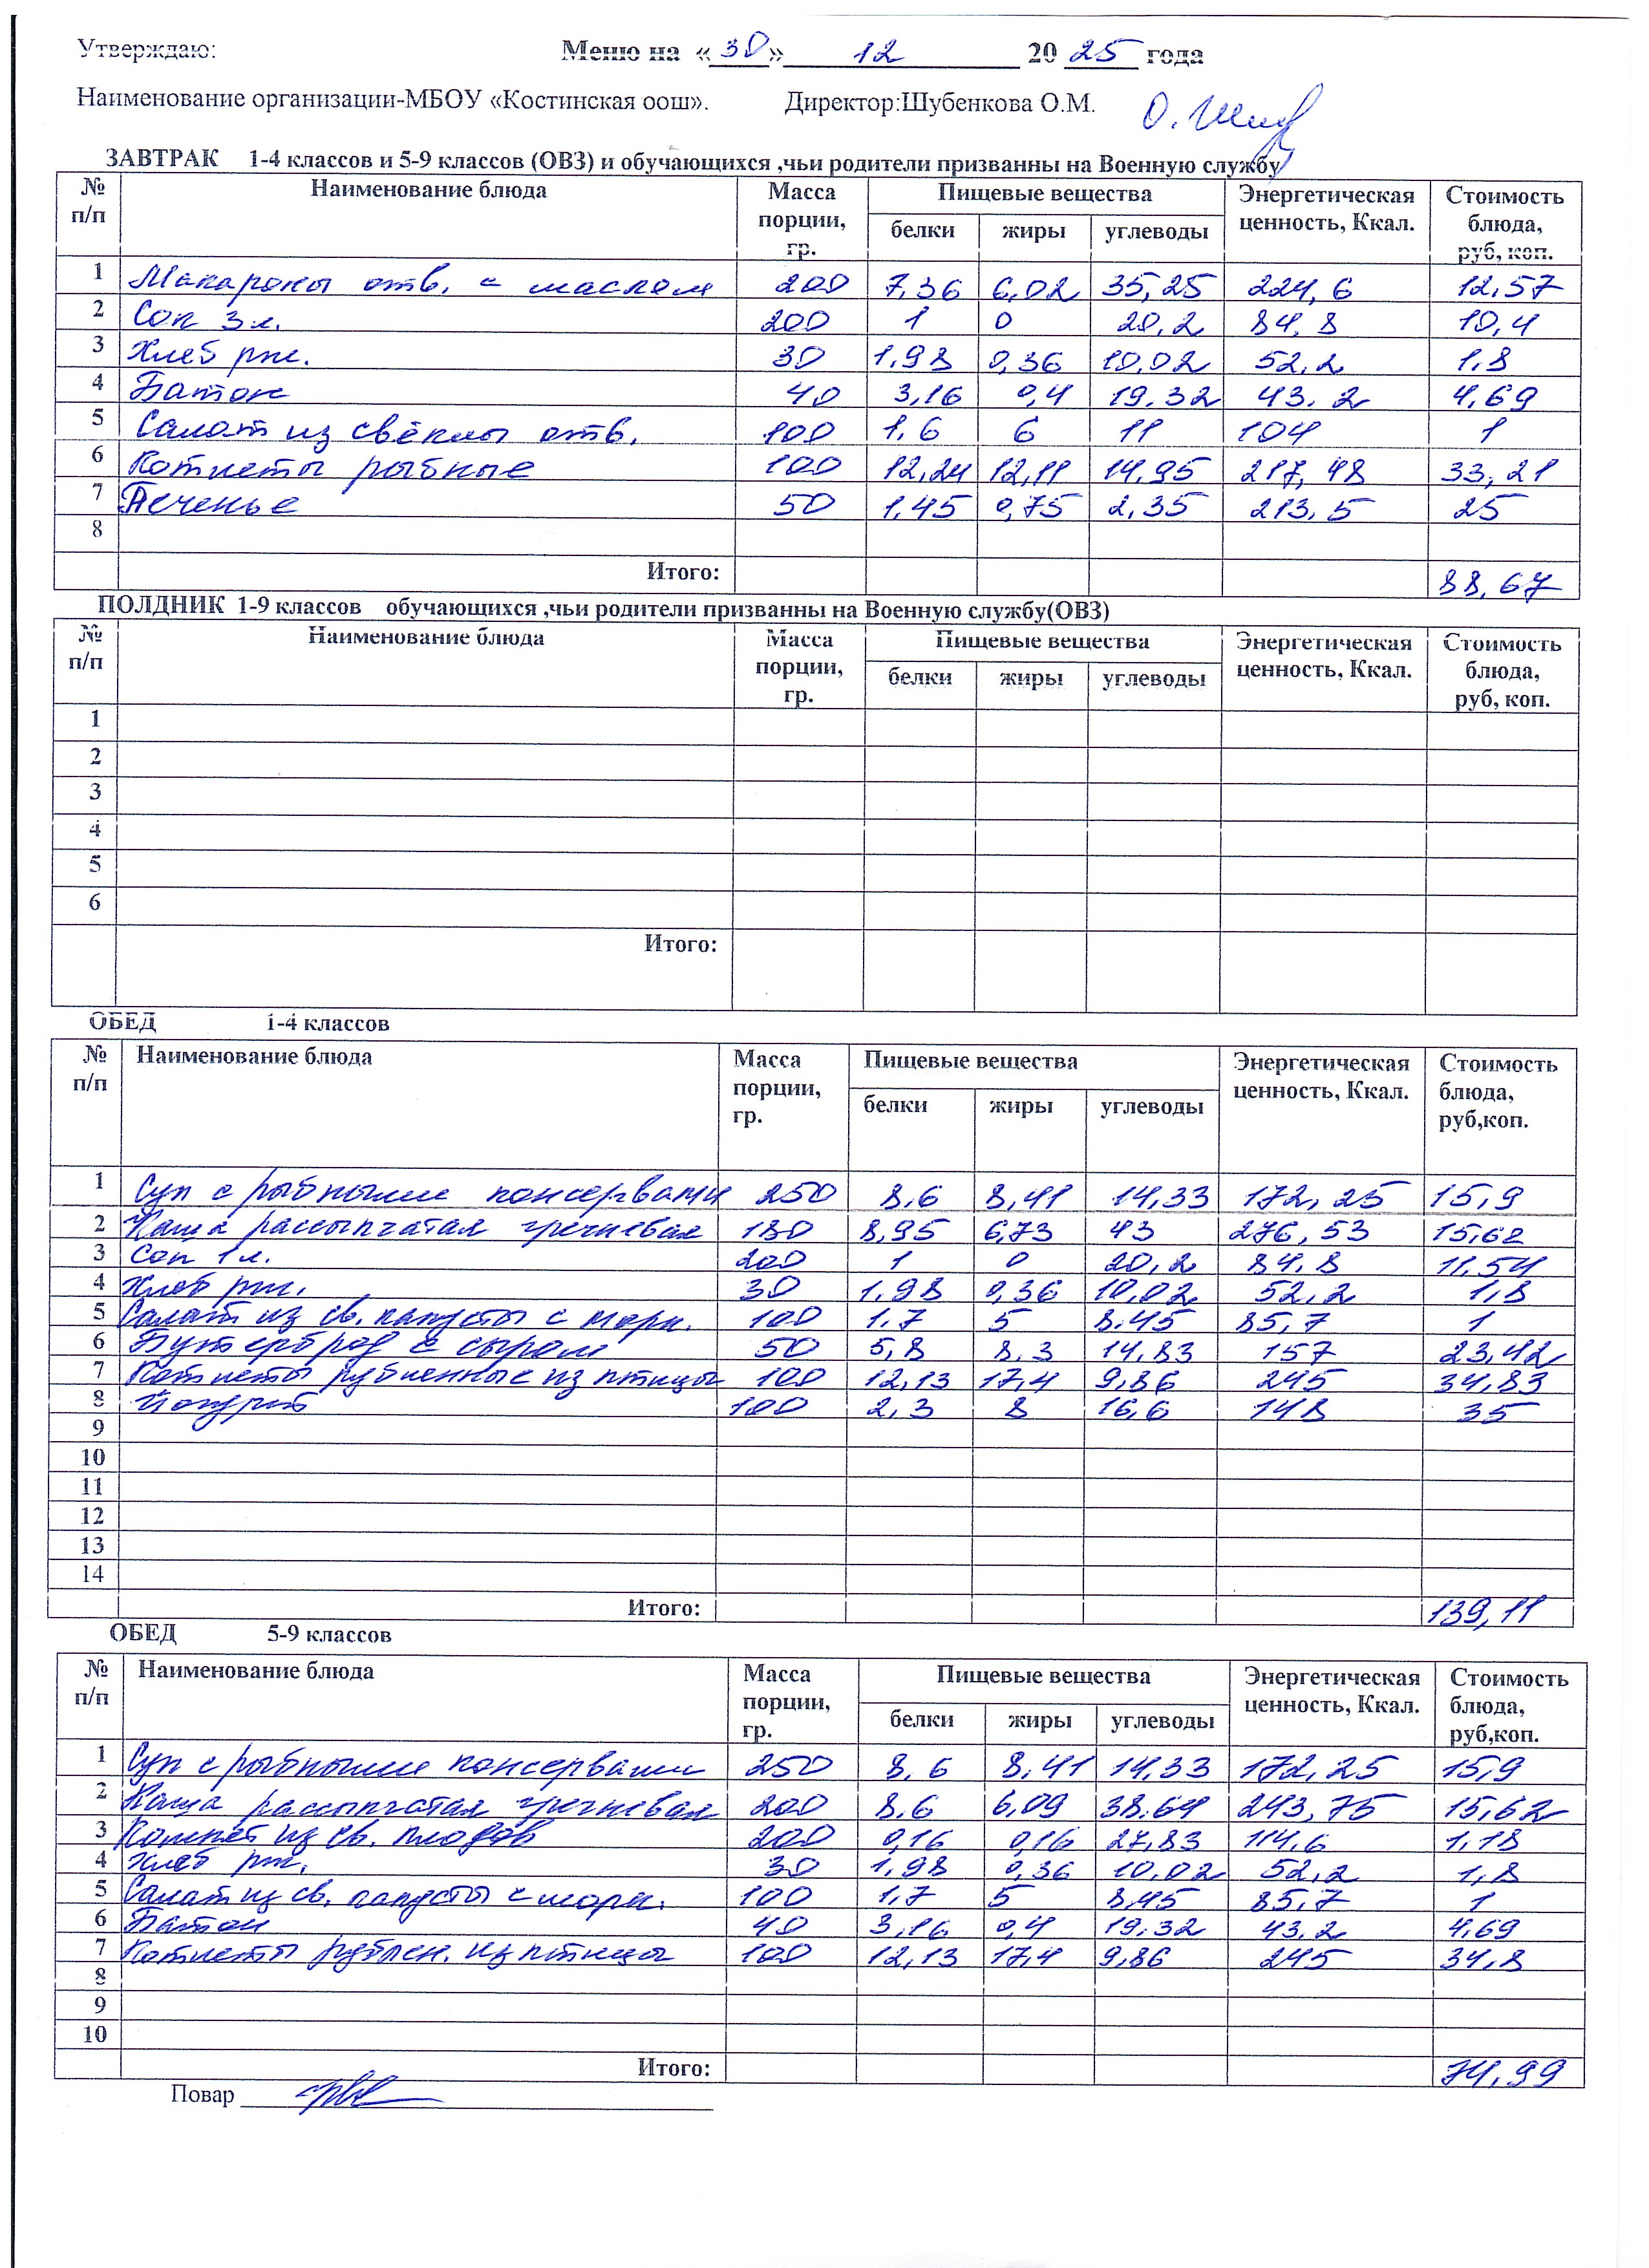 Утверждаю: Меню на «30» 12 20 25 года
Наименование организации-МБОУ «Костинская оош». Директор:Шубенкова О.М.
ЗАВТРАК 1-4 классов и 5-9 классов (ОВЗ) и обучающихся ,чьи родители призванны на Военную службу
№ п/п Наименование блюда Масса порции, гр. Пищевые вещества Энергетическая ценность, Ккал. Стоимость блюда, руб, коп.
белки жиры углеводы
1 Макароны отв. с маслом 200 7,36 6,02 35,25 224,6 12,57
2 Сок 3л. 200 1 0 20,2 84,8 10,4
3 Хлеб рж. 30 1,98 0,36 10,02 52,2 1,8
4 Батон 40 3,16 0,4 19,32 43,2 4,69
5 Салат из свёклы отв. 100 1,6 6 11 104 1
6 Котлеты рыбные 100 12,24 12,11 14,95 217,48 33,21
7 Печенье 50 1,45 0,75 2,35 213,5 25
8
Итого: 88,67
ПОЛДНИК 1-9 классов обучающихся ,чьи родители призванны на Военную службу(ОВЗ)
№ п/п Наименование блюда Масса порции, гр. Пищевые вещества Энергетическая ценность, Ккал. Стоимость блюда, руб, коп.
белки жиры углеводы
1
2
3
4
5
6
Итого:
ОБЕД 1-4 классов
№ п/п Наименование блюда Масса порции, гр. Пищевые вещества Энергетическая ценность, Ккал. Стоимость блюда, руб,коп.
белки жиры углеводы
1 Суп с рыбными консервами 250 8,6 8,41 14,33 172,25 15,9
2 Каша рассыпчатая гречневая 180 8,95 6,73 43 276,53 15,62
3 Сок 1л. 200 1 0 20,2 84,8 11,54
4 Хлеб рж. 30 1,98 0,36 10,02 52,2 1,8
5 Салат из св. капусты с морк. 100 1,7 5 8,45 85,7 1
6 Бутерброд с сыром 50 5,8 8,3 14,83 157 23,42
7 Котлеты рубленные из птицы 100 12,13 17,4 9,86 245 34,83
8 Йогурт 100 2,3 8 16,6 148 35
9
10
11
12
13
14
Итого: 139,11
ОБЕД 5-9 классов
№ п/п Наименование блюда Масса порции, гр. Пищевые вещества Энергетическая ценность, Ккал. Стоимость блюда, руб,коп.
белки жиры углеводы
1 Суп с рыбными консервами 250 8,6 8,41 14,33 172,25 15,9
2 Каша рассыпчатая гречневая 200 8,6 6,09 38,64 243,75 15,62
3 Компот из св. плодов 200 0,16 0,16 27,83 114,6 1,18
4 Хлеб рж. 30 1,98 0,36 10,02 52,2 1,8
5 Салат из св. капусты с морк. 100 1,7 5 8,45 85,7 1
6 Батон 40 3,16 0,4 19,32 43,2 4,69
7 Котлеты рублен. из птицы 100 12,13 17,4 9,86 245 34,8
8
9
10
Итого: 74,99
Повар